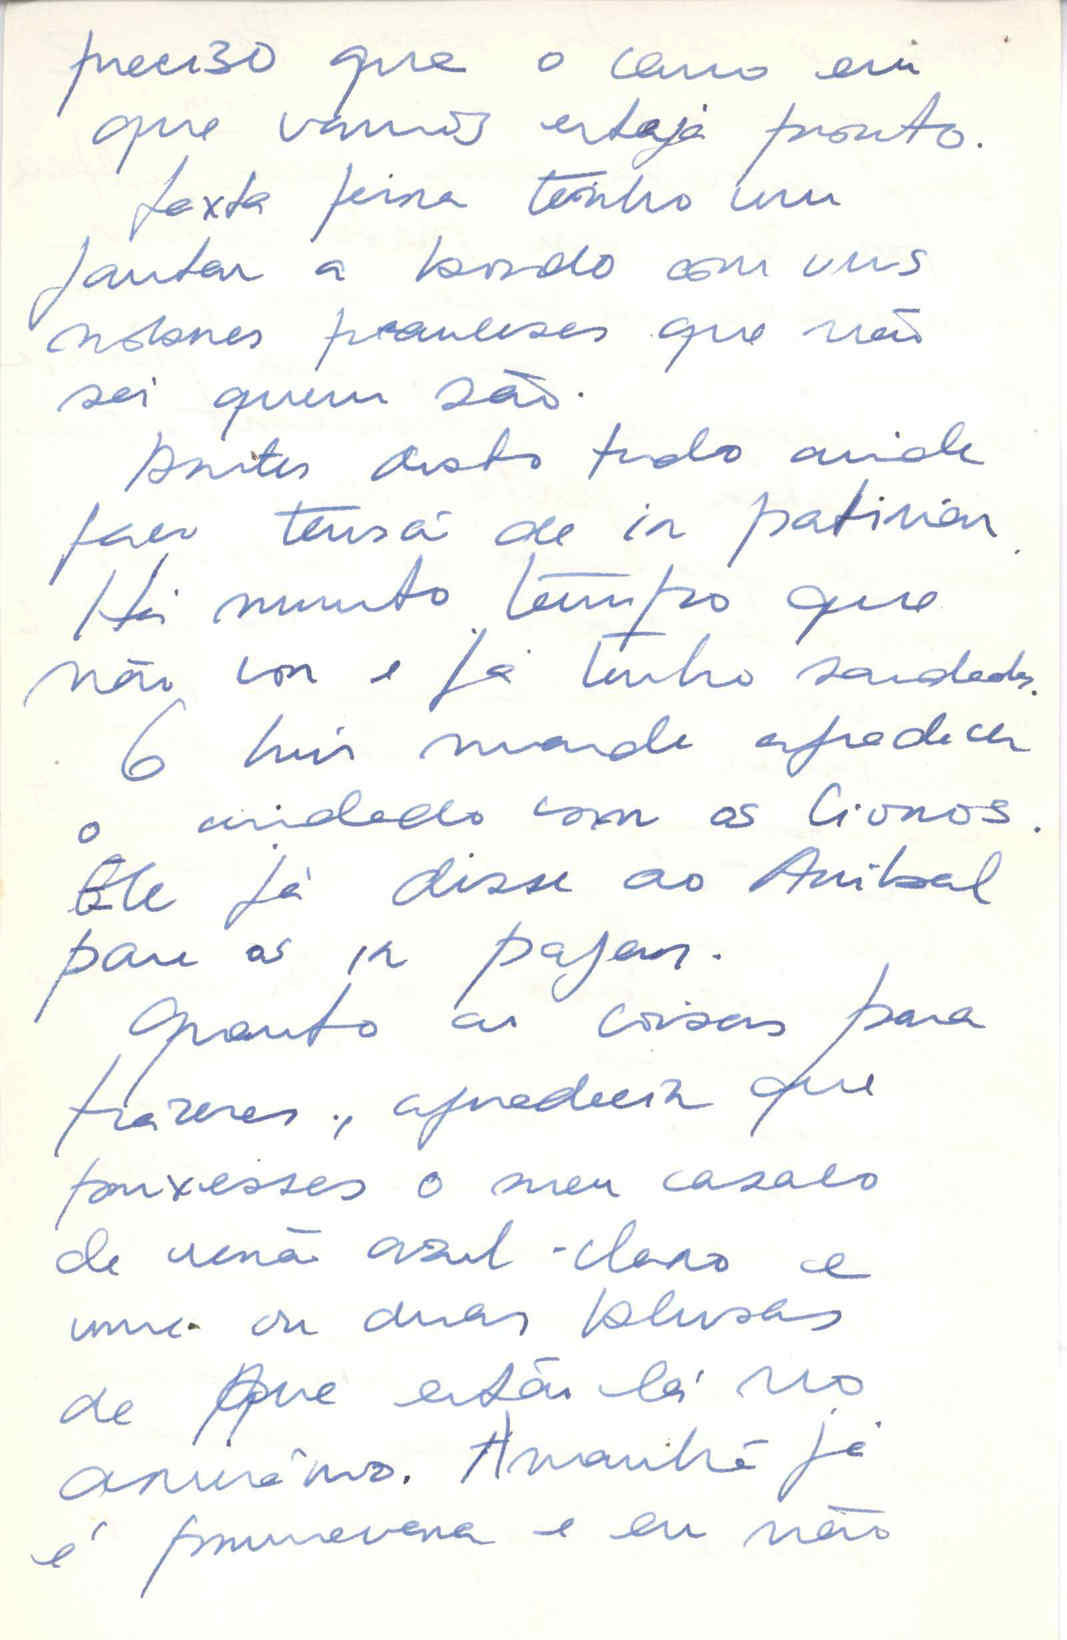 preciso que o carro em
que vamos esteja pronto.
Sexta feira tenho um
jantar a bordo com uns
nobres franceses que não
sei quem são.
Antes disto tudo ainda
faço tensã de ir patinar.
Há muito tempo que
não vou e já tenho saudades.
O Luis manda agradecer
o cuidado com os Cionos.
Ele já disse ao Anibal
para os ir pagar.
Quanto as coisas para
trazeres, agradecia que
trouxesses o meu casaco
de renã azul-claro e
uma ou duas blusas
de que estão lá no
armário. Amanhã já
é primavera e eu não